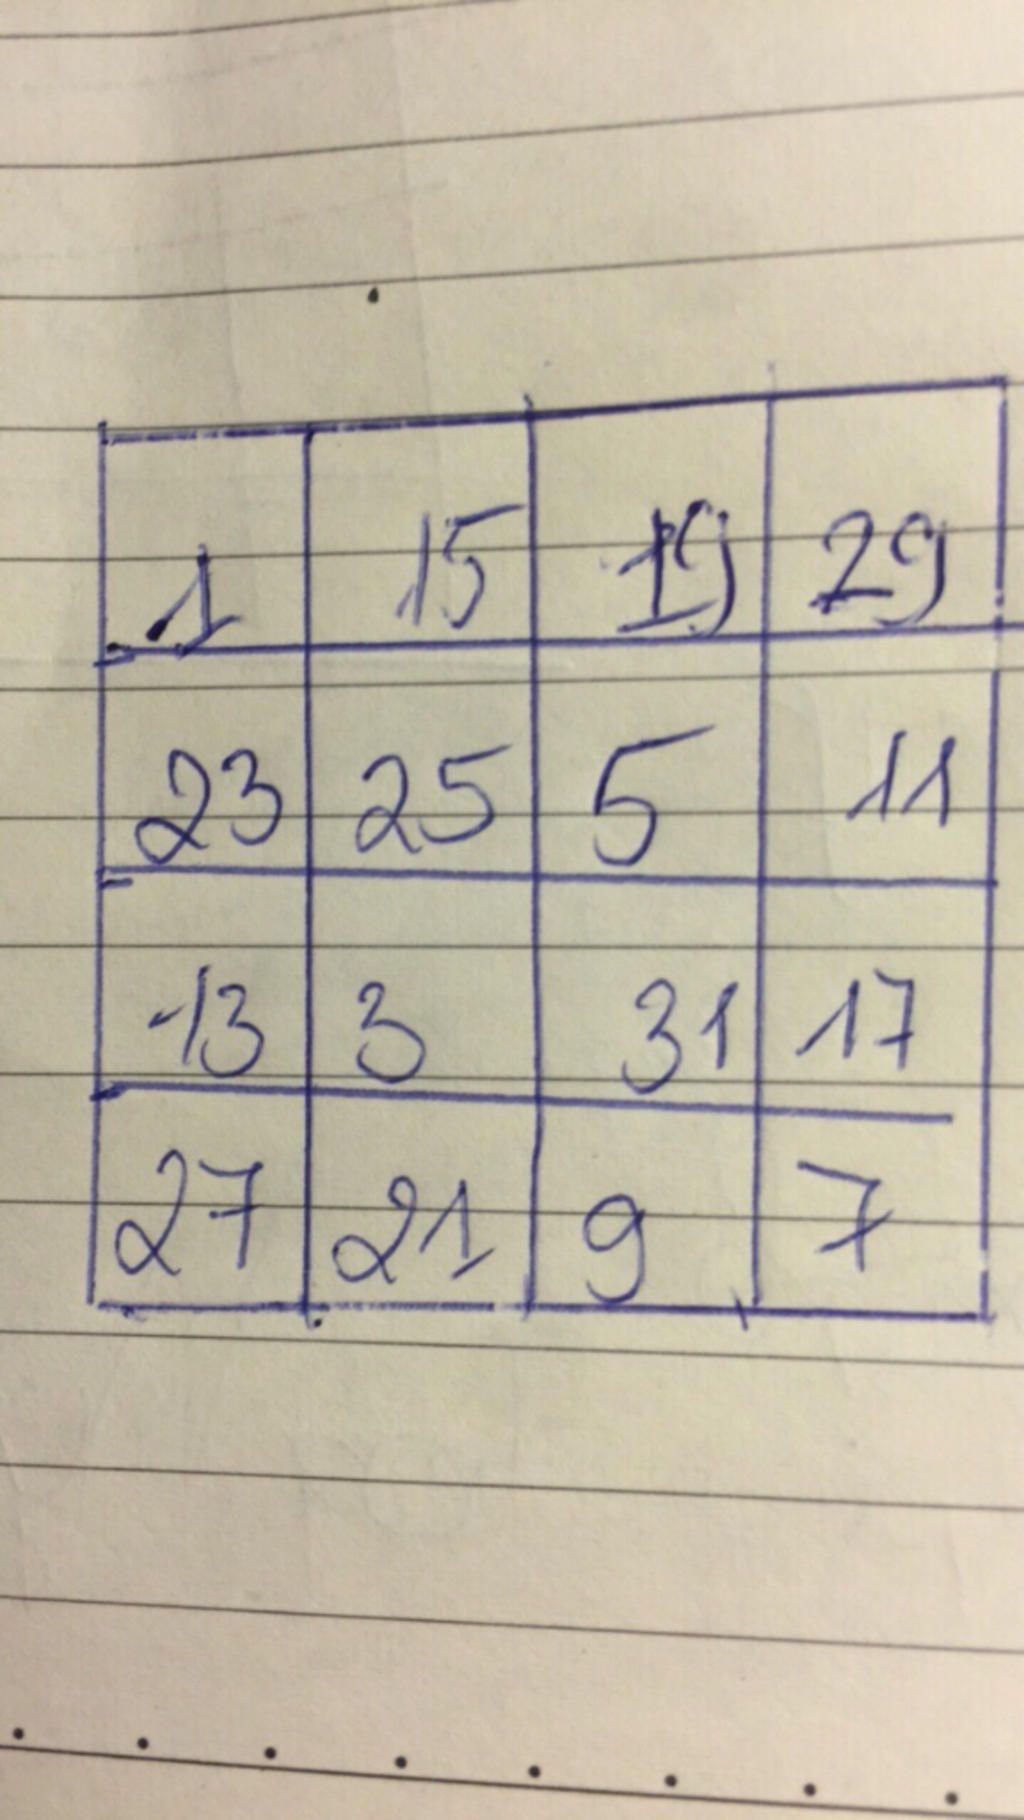 1 15 19 29
23 25 5 11
13 3 31 17
27 21 9 7